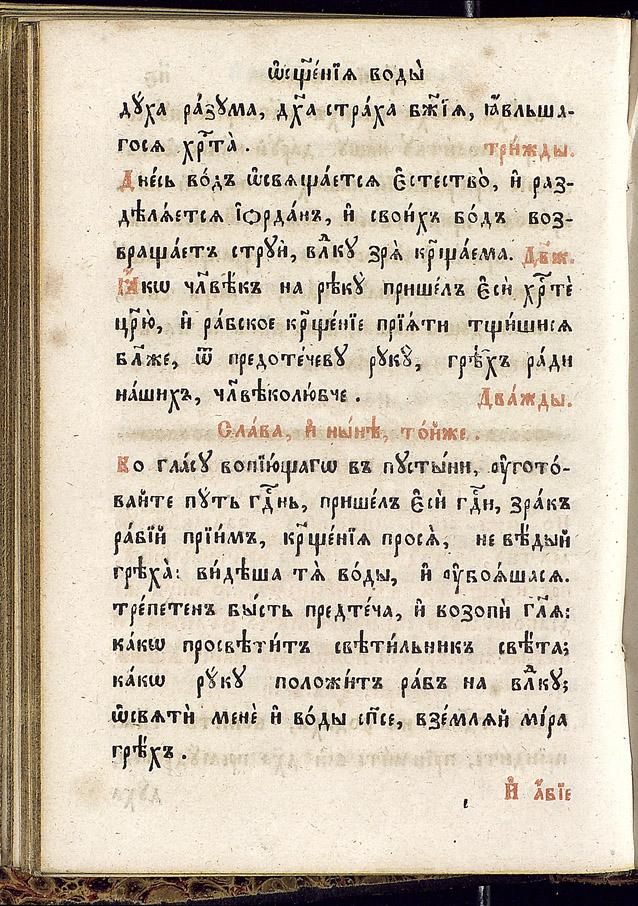 ѡ҆сщ҃е́нїѧ воды̀
дꙋ́ха ра́зꙋма, дх҃а стра́ха бж҃їѧ, ꙗ҆́вльша-
госѧ хрⷭ҇та̀. три́жды.
Дне́сь во́дъ ѡ҆свѧща́етсѧ є҆стество̀, и҆ раз-
дѣлѧ́етсѧ і҆ѻрда́нъ, и҆ свои́хъ во́дъ воз-
враща́етъ стрꙋи̑, влⷣкꙋ зрѧ̀ крⷭ҇ща́ема. Два́ж.
Ꙗ҆́кѡ чл҃вѣ́къ на рѣкꙋ̀ прише́лъ є҆сѝ хрⷭ҇тѐ
цр҃ю̀, и҆ ра́бское крⷭ҇ще́нїе прїѧ́ти тщи́шисѧ
бл҃же, ѿ предоте́чевꙋ рꙋкꙋ̑, грѣ̑хъ ра́ди
на́шихъ, чл҃вѣколю́бче. Два́жды.
Сла́ва, и҆ ны́нѣ, то́йже.
Ко гла́сꙋ вопїю́щагѡ въ пꙋсты́ни, ᲂу҆гото́-
вайте пꙋ́ть гдⷭ҇нь, прише́лъ є҆сѝ гдⷭ҇и, зра́къ
ра́бїй прїи́мъ, крⷭ҇ще́нїѧ просѧ̀, не вѣ́дый
грѣха̀: ви́дѣша тѧ̀ во́ды, и҆ ᲂу҆боѧ́шасѧ.
тре́петенъ бы́сть предте́ча, и҆ возопѝ гл҃ѧ:
ка́кѡ просвѣти́тъ свѣти́льникъ свѣ́та;
ка́кѡ рꙋ́кꙋ положи́тъ ра́бъ на влⷣкꙋ;
ѡ҆свѧтѝ менѐ и҆ во́ды сп҃се, взе́млѧй мі́ра
грѣ́хъ.
И҆ а҆́бїе